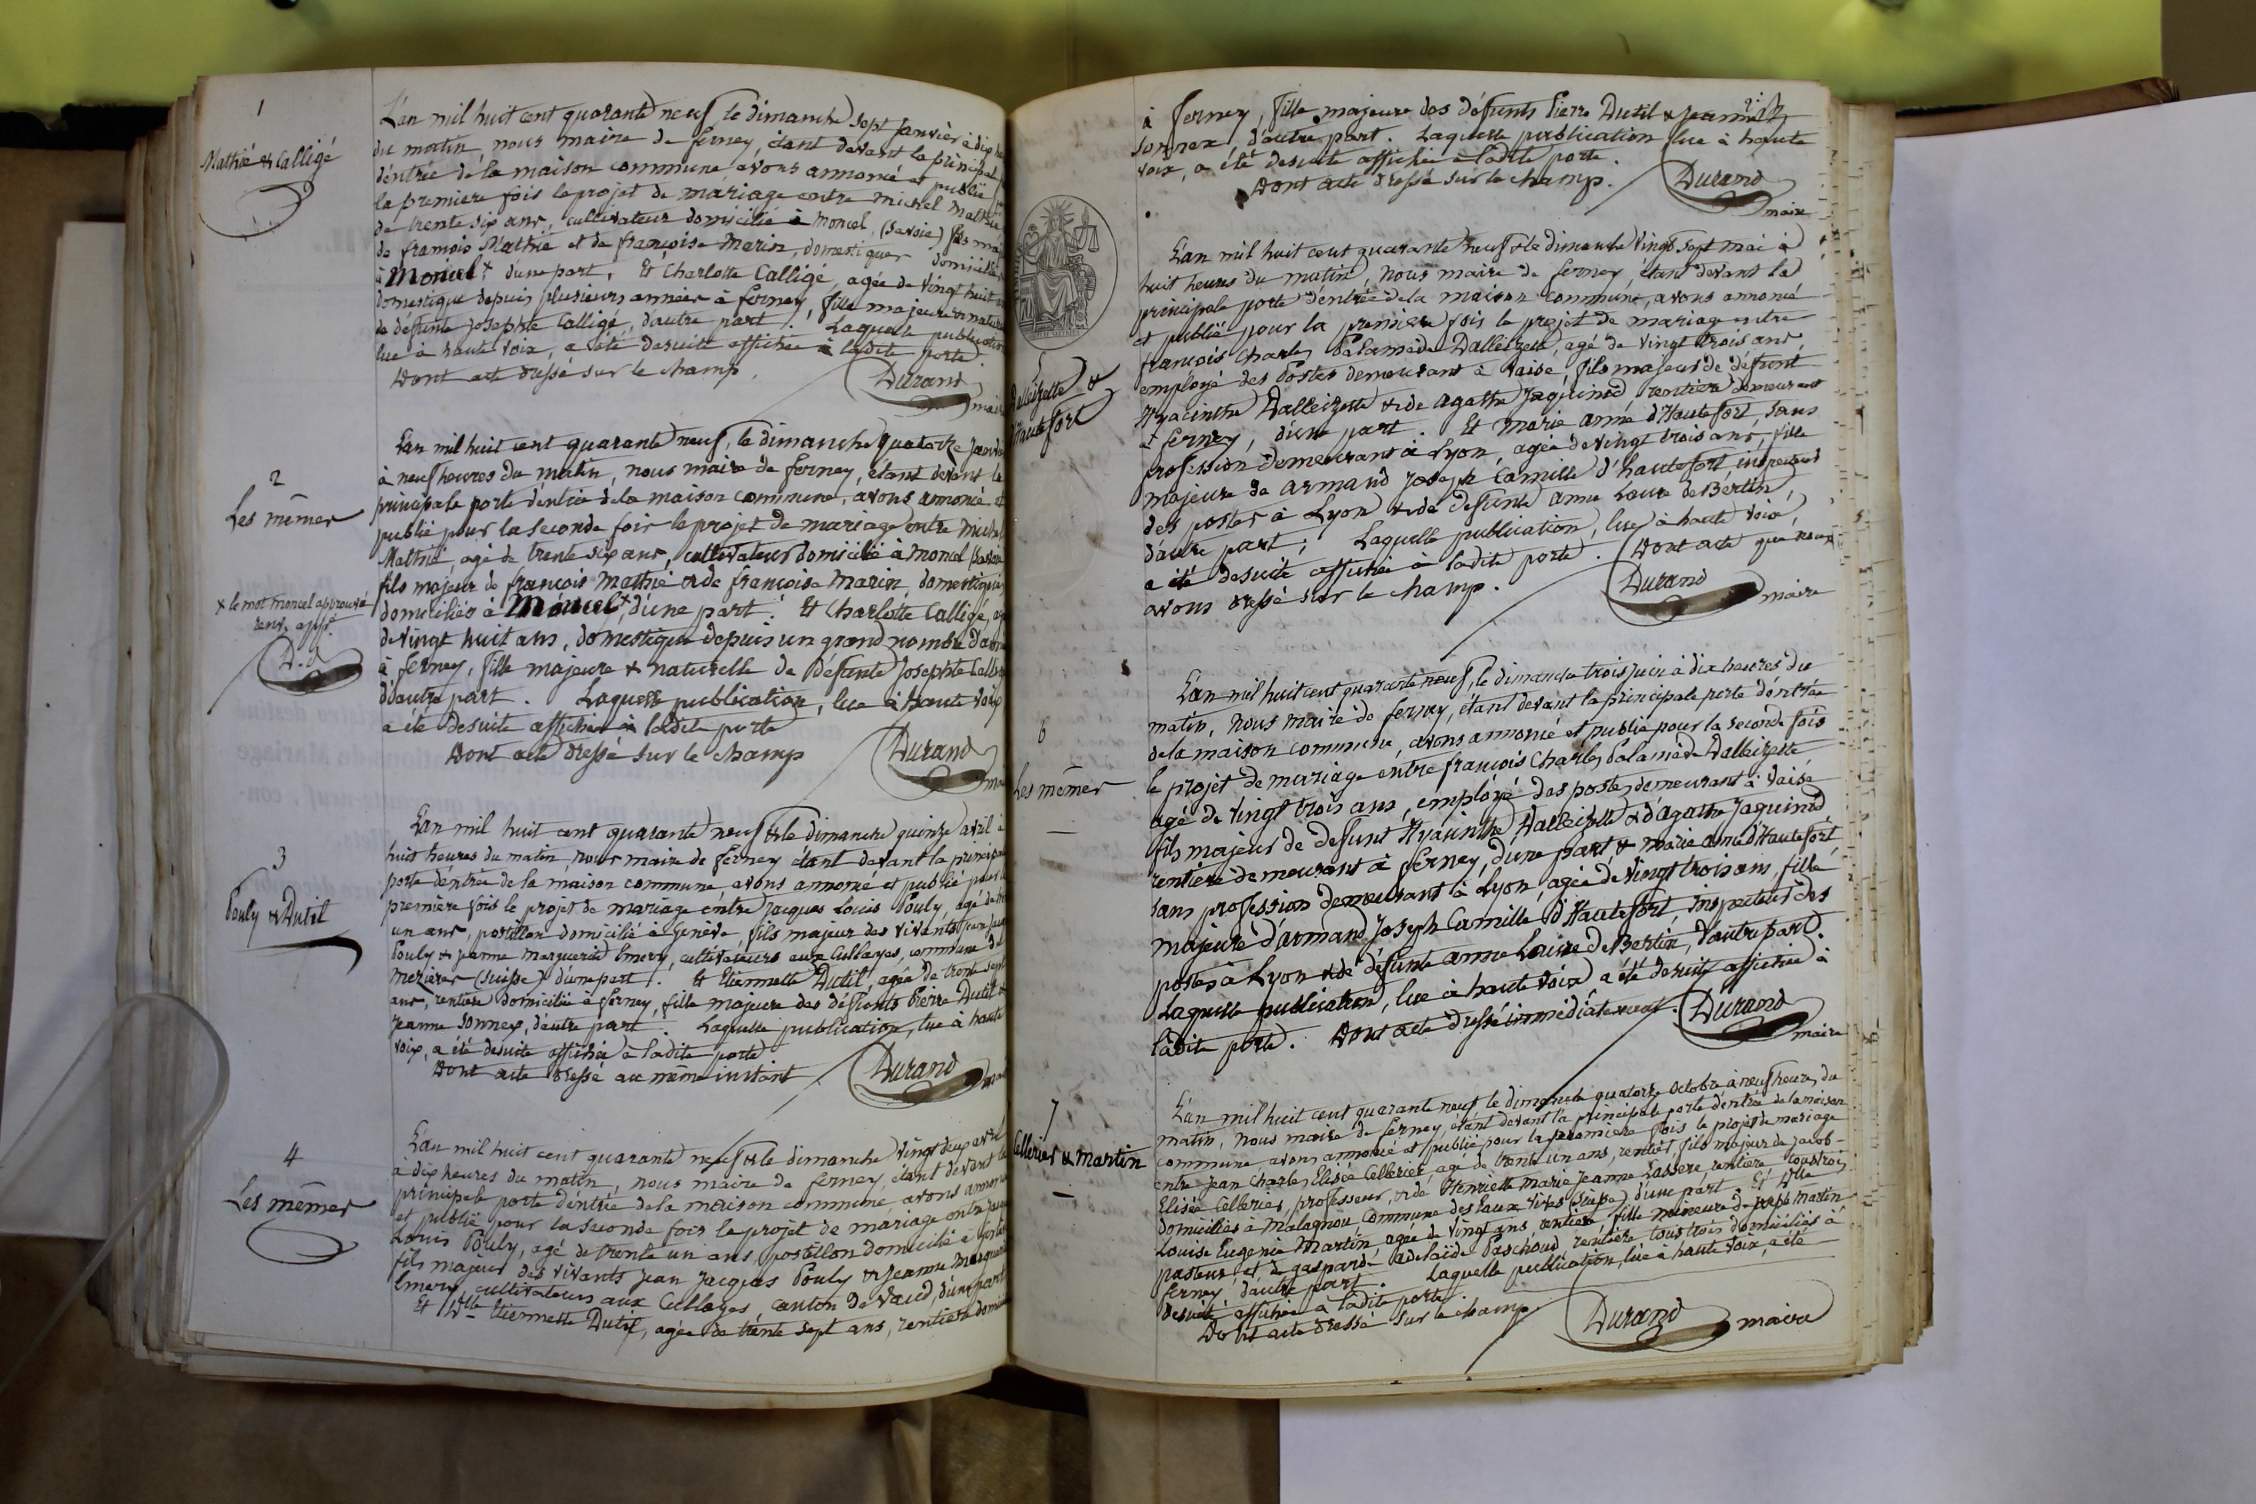 1
Mathié & Calligé
L'an mil huit cent quarante neuf le dimanche sept Janvier à dix
du matin, nous maire de ferney, étant devant la principale
d'entrée de la maison commune, avons annoncé et publié
la premiere fois le projet de mariage entre michel Mathié
de trente six ans, cultivateur domicilié à moncel, (Savoie) fils
de françois Mathié et de françoise Marin, domestiques domiciliés
à Moncel x d'une part, Et Charlotte Calligé, agée de Vingt huit
domestique depuis plusieurs années à ferney, fille majeure & naturelle
de défunte Josephte Calligé, d'autre part. Laquelle publication
lue à haute voix, a été desuite affichée à ladite porte
Dont acte dressé sur le champ.
Durand
2
Les mêmes
L'an mil huit cent quarante neuf, le dimanche quatorze Janvier
à neuf heures du matin, nous maire de ferney, étant devant la
principale porte d'entrée de la maison commune, avons annoncé et
publié pour la seconde fois le projet de mariage entre
Mathié, agé de trente six ans, cultivateur domicilié à moncel
fils majeur de françois Mathié & de françoise Marin, domestiques
domiciliés à Moncel x, d'une part. Et Charlotte Calligé,
de vingt huit ans, domestique depuis un grand nombre
à ferney, fille majeure & naturelle de défunte Josephte
d'autre part. Laquelle publication, lue à haute voix
a été desuite affichée à ladite porte
Dont acte dressé sur le champ
Durand
x le mot moncel approuvé
D.d
3
Pouly & Dutil
L'an mil huit cent quarante neuf & le dimanche quinze avril à
huit heures du matin, nous maire de ferney étant devant la principale
porte d'entrée de la maison commune, avons annoncé et publié pour la
première fois le projet de mariage entre Jacques Louis Pouly, agé de
un ans, postillon domicilié à Genève, fils majeur des vivants
Pouly & Jeanne Marguerite Emery, cultivateurs aux Cullayes, commune de
Mezières (Suisse) d'une part. Et Etiennette Dutil, agée de trente sept
ans, rentière domiciliée à ferney, fille majeure des défunts Pierre Dutil &
Jeanne Sonnex, d'autre part. Laquelle publication, lue à haute
voix, a été desuite affichée à ladite porte
Dont acte dressé au même instant
Durand
4
Les mêmes
L'an mil huit cent quarante neuf & le dimanche Vingt deux avril
à dix heures du matin, nous maire de ferney, étant devant la
principale porte d'entrée de la maison commune, avons annoncé
et publié pour la seconde fois le projet de mariage entre
Louis Pouly, agé de trente un ans, postillon domicilié à
fils majeur des vivants Jean Jacques Pouly & Jeanne Marguerite
Emery, cultivateurs aux Cullayes, canton de Vaud, d'une part
Et Dlle Etiennette Dutil, agée de trente sept ans, rentière
à ferney, fille majeure des défunts Pierre Dutil & Jeanne
Sonnex, d'autre part. Laquelle publication lue à haute
voix, a été desuite affichée à ladite porte.
Dont acte dressé sur le champ.
Durand
maire
Dalleizette &
d'Hautefort
L'an mil huit cent quarante neuf & le dimanche Vingt sept mai à
huit heures du matin, nous maire de ferney, étant devant la
principale porte d'entrée de la maison commune, avons annoncé
et publié pour la première fois le projet de mariage entre
françois Charles Palamède Dalleizette, agé de vingt trois ans,
employé des Postes demeurant à Vaise, fils majeur de défunt
Hyacinthe Dalleizette & de Agathe Jaquinod, rentière demeurant
à ferney, d'une part. Et Marie anne d'Hautefort, sans
profession demeurant à Lyon, agée de vingt trois ans, fille
majeure de armand Joseph Camille d'hautefort, inspecteur
des postes à Lyon & de defunte anne Laure de Bertin
d'autre part; Laquelle publication, lue à haute voix,
a été desuite affichée à ladite porte. Dont acte que nous
avons dressé sur le champ.
Durand
maire
6
Les mêmes
L'an mil huit cent quarante neuf, le dimanche trois juin à dix heures du
matin, nous maire de ferney, étant devant la principale porte d'entrée
de la maison commune, avons annoncé et publié pour la seconde fois
le projet de mariage entre françois Charles Palamède Dalleizette
agé de vingt trois ans, employé des postes, demeurant à Vaise
fils majeur de defunt Hyacinthe Dalleizette & d'Agathe Jaquinod
rentière demeurant à ferney, d'une part & Marie anne d'Hautefort,
sans profession demeurant à Lyon, agée de vingt trois ans, fille
majeure d'armand Joseph Camille d'Hautefort, inspecteur des
postes à Lyon & de défunte anne Laure de Bertin, d'autre part.
Laquelle publication, lue à haute voix a été desuite affichée à
ladite porte. Dont acte dressé immédiatement.
Durand
maire
7
Cellerier & Martin
L'an mil huit cent quarante neuf le dimanche quatorze Octobre à neuf heures du
matin, nous maire de ferney, étant devant la principale porte d'entrée de la maison
commune, avons annoncé et publié pour la première fois le projet de mariage
entre Jean Charles Elisée Cellerier, agé de trente un ans, rentier, fils majeur de Jacob-
Elisée Cellerier, professeur, & de Henriette Marie Jeanne Lassere, rentière tous trois
domiciliés à Malagnou Commune des Eaux Vives (Suisse) d'une part. Et Dlle
Louise Eugenie Martin, agée de vingt ans rentière fille mineure de Martin
pasteur et de gasparde adelaïde Paschoud, rentière tous trois domiciliés à
ferney d'autre part. Laquelle publication, lue à haute voix, a été
desuite affichée à ladite porte
Dont acte dressé sur le champ
Durand
maire